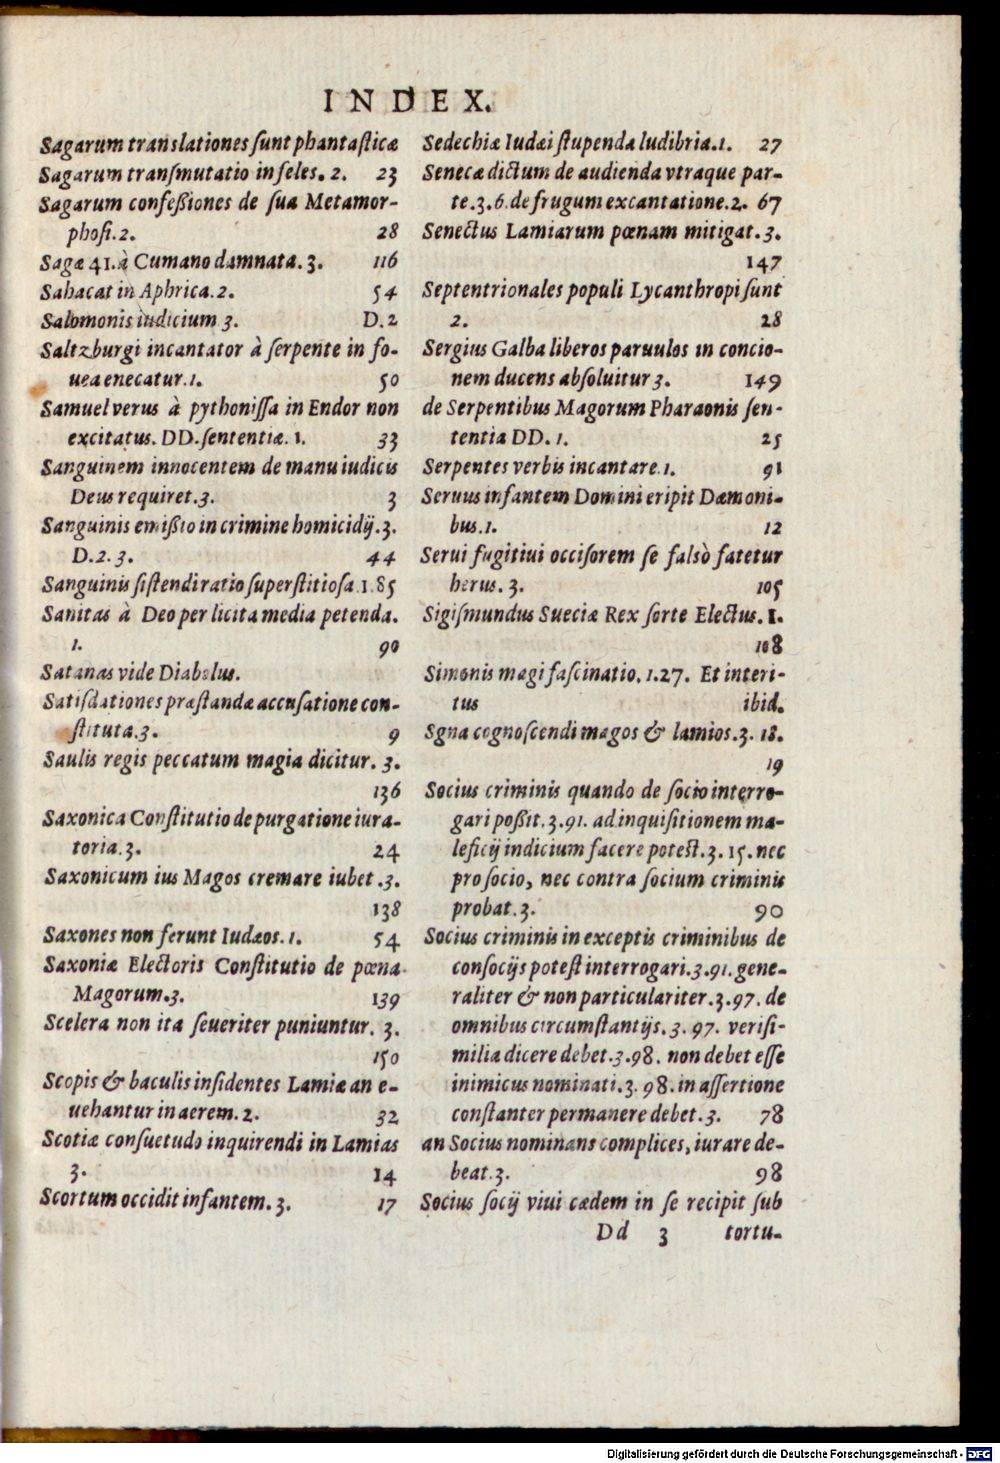 INDEX.
Sagarum translationes ſunt phantaſticæ
Sagarum tranſmutatio in feles. 2. 23
Sagarum confeßiones de ſua Metamor-
phoſi. 2. 28
Sagæ 41. à Cumano damnata. 3. 116
Sahacat in Aphrica. 2. 54
Salomonis iudicium 3. D. 2
Saltzburgi incantator à ſerpente in fo-
uea enecatur. 1. 50
Samuel verus à pythoniſſa in Endor non
excitatus. DD. ſententiæ. 1. 33
Sanguinem innocentem de manu iudicis
Deus requiret. 3. 3
Sanguinis emißio in crimine homicidij. 3.
D. 2. 3. 44
Sanguinis ſiſtendi ratio ſuperſtitioſa. 1. 85
Sanitas à Deo per licita media petenda.
1. 90
Satanas vide Diabolus.
Satiſdationes præſtandæ accuſatione con-
ſtituta. 3. 9
Saulis regis peccatum magia dicitur. 3.
136
Saxonica Conſtitutio de purgatione iura-
toria. 3. 24
Saxonicum ius Magos cremare iubet. 3.
138
Saxones non ferunt Iudæos. 1. 54
Saxoniæ Electoris Conſtitutio de pœna
Magorum. 3. 139
Scelera non ita ſeueriter puniuntur. 3.
150
Scopis & baculis inſidentes Lamiæ an e-
uehantur in aerem. 2. 32
Scotiæ conſuetudo inquirendi in Lamias
3. 14
Scortum occidit infantem. 3. 17
Sedechiæ Iudæi ſtupenda ludibria. 1. 27
Senecæ dictum de audienda vtraque par-
te. 3. 6. de frugum excantatione. 2. 67
Senectus Lamiarum pœnam mitigat. 3.
147
Septentrionales populi Lycanthropi ſunt
2. 28
Sergius Galba liberos paruulos in concio-
nem ducens abſoluitur 3. 149
de Serpentibus Magorum Pharaonis ſen-
tentia DD. 1. 25
Serpentes verbis incantare. 1. 91
Seruus infantem Domini eripit Dæmoni-
bus. 1. 12
Serui fugitiui occiſorem ſe falsò fatetur
herus. 3. 105
Sigiſmundus Sueciæ Rex ſorte Electus. 1.
108
Simonis magi faſcinatio. 1. 27. Et interi-
tus ibid.
Sgna cognoſcendi magos & lamios. 3. 18.
19
Socius criminis quando de ſocio interro-
gari poßit. 3. 91. ad inquiſitionem ma-
leficij indicium facere poteſt. 3. 15. nec
pro ſocio, nec contra ſocium criminis
probat. 3. 90
Socius criminis in exceptis criminibus de
conſocijs poteſt interrogari. 3. 91. gene-
raliter & non particulariter. 3. 97. de
omnibus circumſtantijs. 3. 97. veriſi-
milia dicere debet. 3. 98. non debet eſſe
inimicus nominati. 3. 98. in aſſertione
conſtanter permanere debet. 3. 78
an Socius nominans complices, iurare de-
beat. 3. 98
Socius ſocij viui cædem in ſe recipit ſub
Dd 3 tortu-
Digitalisierung gefördert durch die Deutsche Forschungsgemeinschaft - DFG